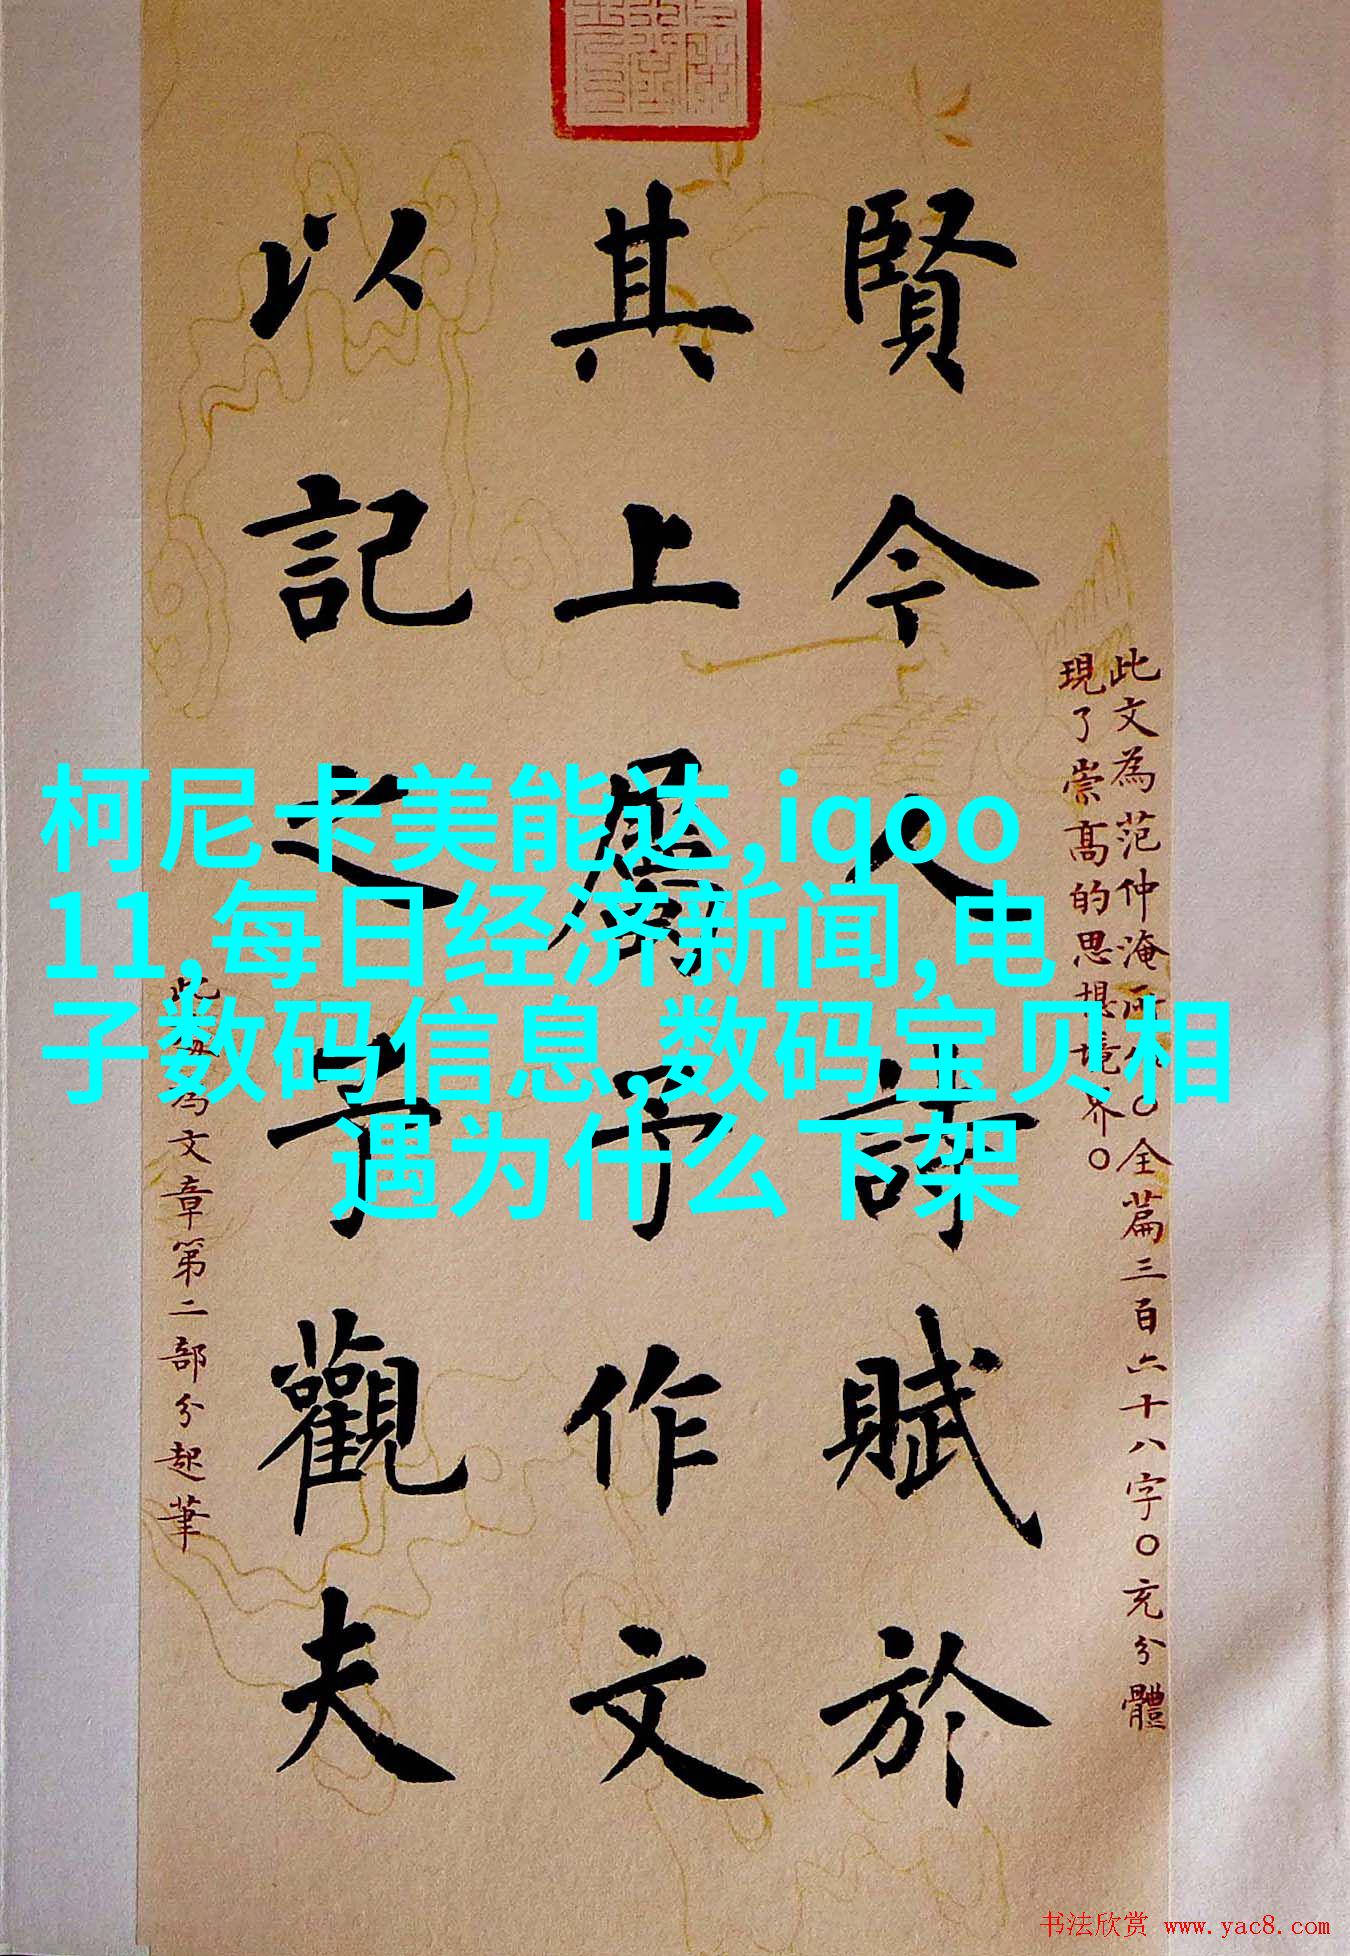 此文為范仲淹所作○全篇三百六十八字○充分體
現了崇高的思想境界○
賢今人詩賦於
其上屬予作文
以記之予觀夫
此為文章第二部分起筆
柯尼卡美能达,iqoo
11,每日经济新闻,电
子数码信息,数码宝贝相
遇为什么下架
书法欣赏 www.yac8.com